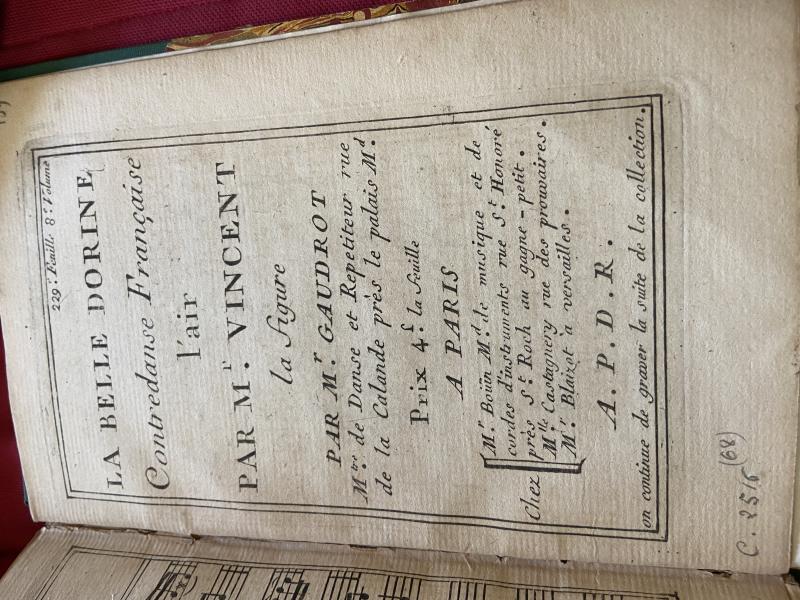 229.e Feuille 8.e Volume
LA BELLE DORINE
Contredanse Française
l'air
PAR M.r VINCENT
la figure
PAR M.r GAUDROT
M.tre de Danse et Repetiteur rue
de la Calande près le palais M.d
Prix 4.s la feuille
A PARIS
Chez
M.r Boüin M.d de musique et de
cordes d'instruments rue S.t Honoré
près S.t Roch au gagne-petit.
M.lle Castagnery rue des prouvaires.
M.r Blaizot à versailles.
A. P. D. R.
on continue de graver la suite de la collection.
C. 2515 (68)